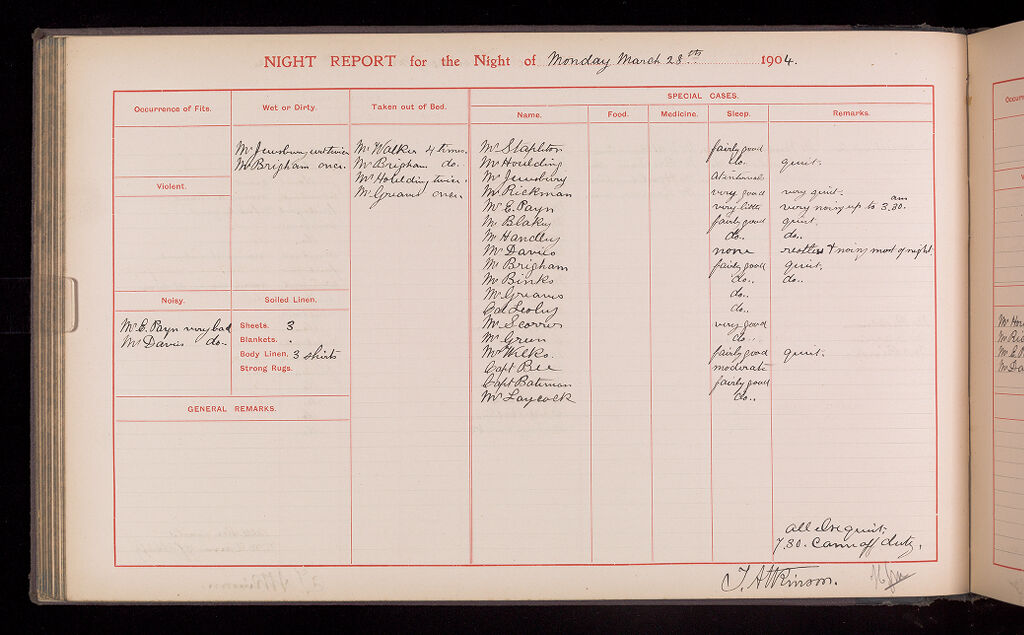 NIGHT REPORT for the Night of Monday March 28th 1904.
Occurrence of Fits.
Wet or Dirty.
Mr Jewsbury wet twice
Mr Brigham once.
Taken out of Bed.
Mr Walker 4 times.
Mr Brigham do.
Mr Houlding twice.
Mr Greaves once.
Violent.
Noisy.
Mr E. Payn very bad
Mr Davies do..
Soiled Linen.
Sheets. 3
Blankets. .
Body Linen. 3 shirts
Strong Rugs.
GENERAL REMARKS.
SPECIAL CASES.
Name. Food. Medicine. Sleep. Remarks.
Mr Stapleton fairly good
Mr Houlding do. quiet.
Mr Jewsbury At intervals
Mr Rickman very good very quiet.
Mr E. Payn very little very noisy up to 3.30. am
Mr Blakey fairly good quiet.
Mr Handley do.. do..
Mr Davies none restless & noisy most of night.
Mr Brigham fairly good quiet.
Mr Binks do.. do..
Mr Greaves do..
Col Lesley do..
Mr Scorrer very good
Mr Green do..
Mr Wilks. fairly good quiet.
Capt Bee moderate
Capt Bateman fairly good
Mr Laycock do..
All else quiet.
7.30. Came off duty.
T. Atkinson.
Occurr
V
Mr Hou
Mr Ric
Mr E. P
Mr Da